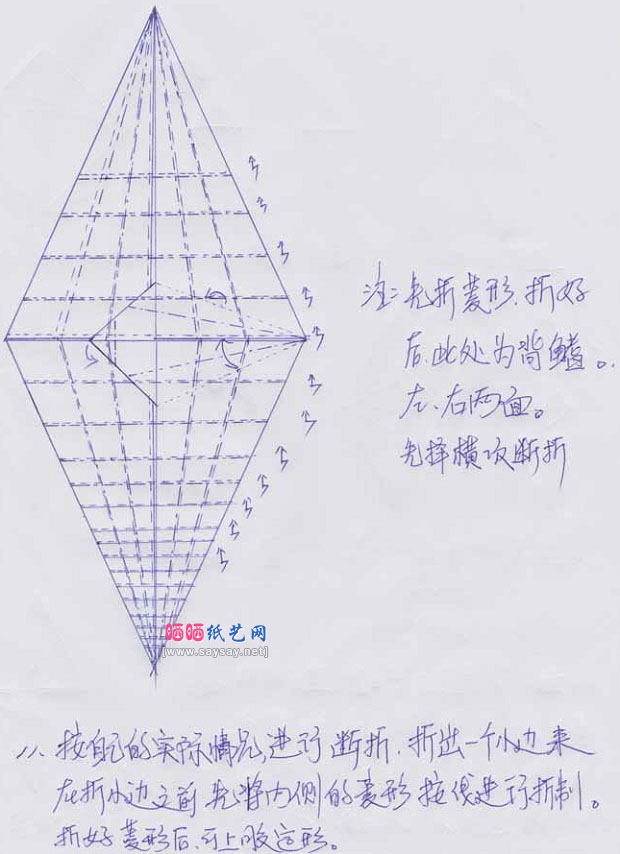 注:先折菱形.折好
后.此处为背鳍。
左、右两面。
先择横攻断折
晒晒纸艺网
[www.saysay.net]
八、按自己的实际情况,进行断折.折出一个小边来
在折小边之前先将内侧的菱形按线进行折制。
折好菱形后.可上胶定形。